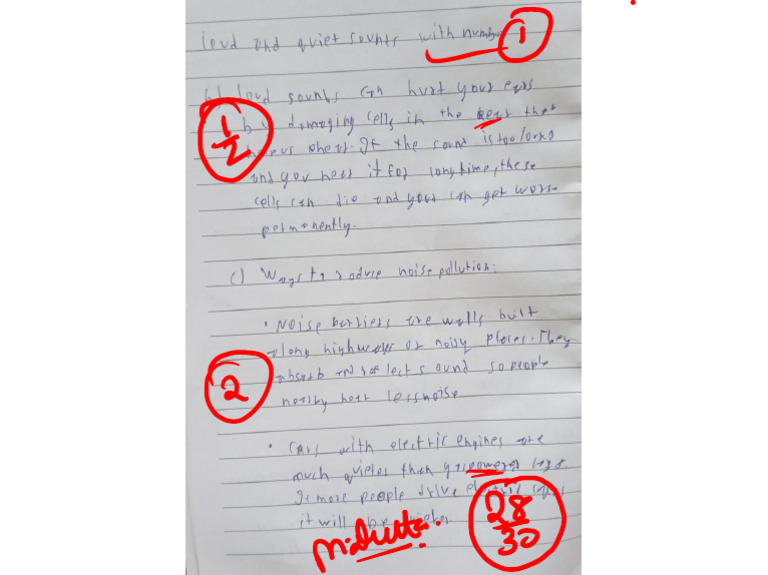 loud and quiet sounds with number 1
b) loud sounds can hurt your ears
by damaging cells in the ear that
1/2
help us hear. If the sound is too long
and you hear it for long time, these
cells can die and your can get worse
permanently.
c) Ways to reduce noise pollution:
• Noise barriers are walls built
along highways or noisy places. They
absorb and reflect sound so people
2
nearby hear less noise
• Cars with electric engines are
much quieter than gas powered
If more people drive electric cars
it will be quieter
28/30